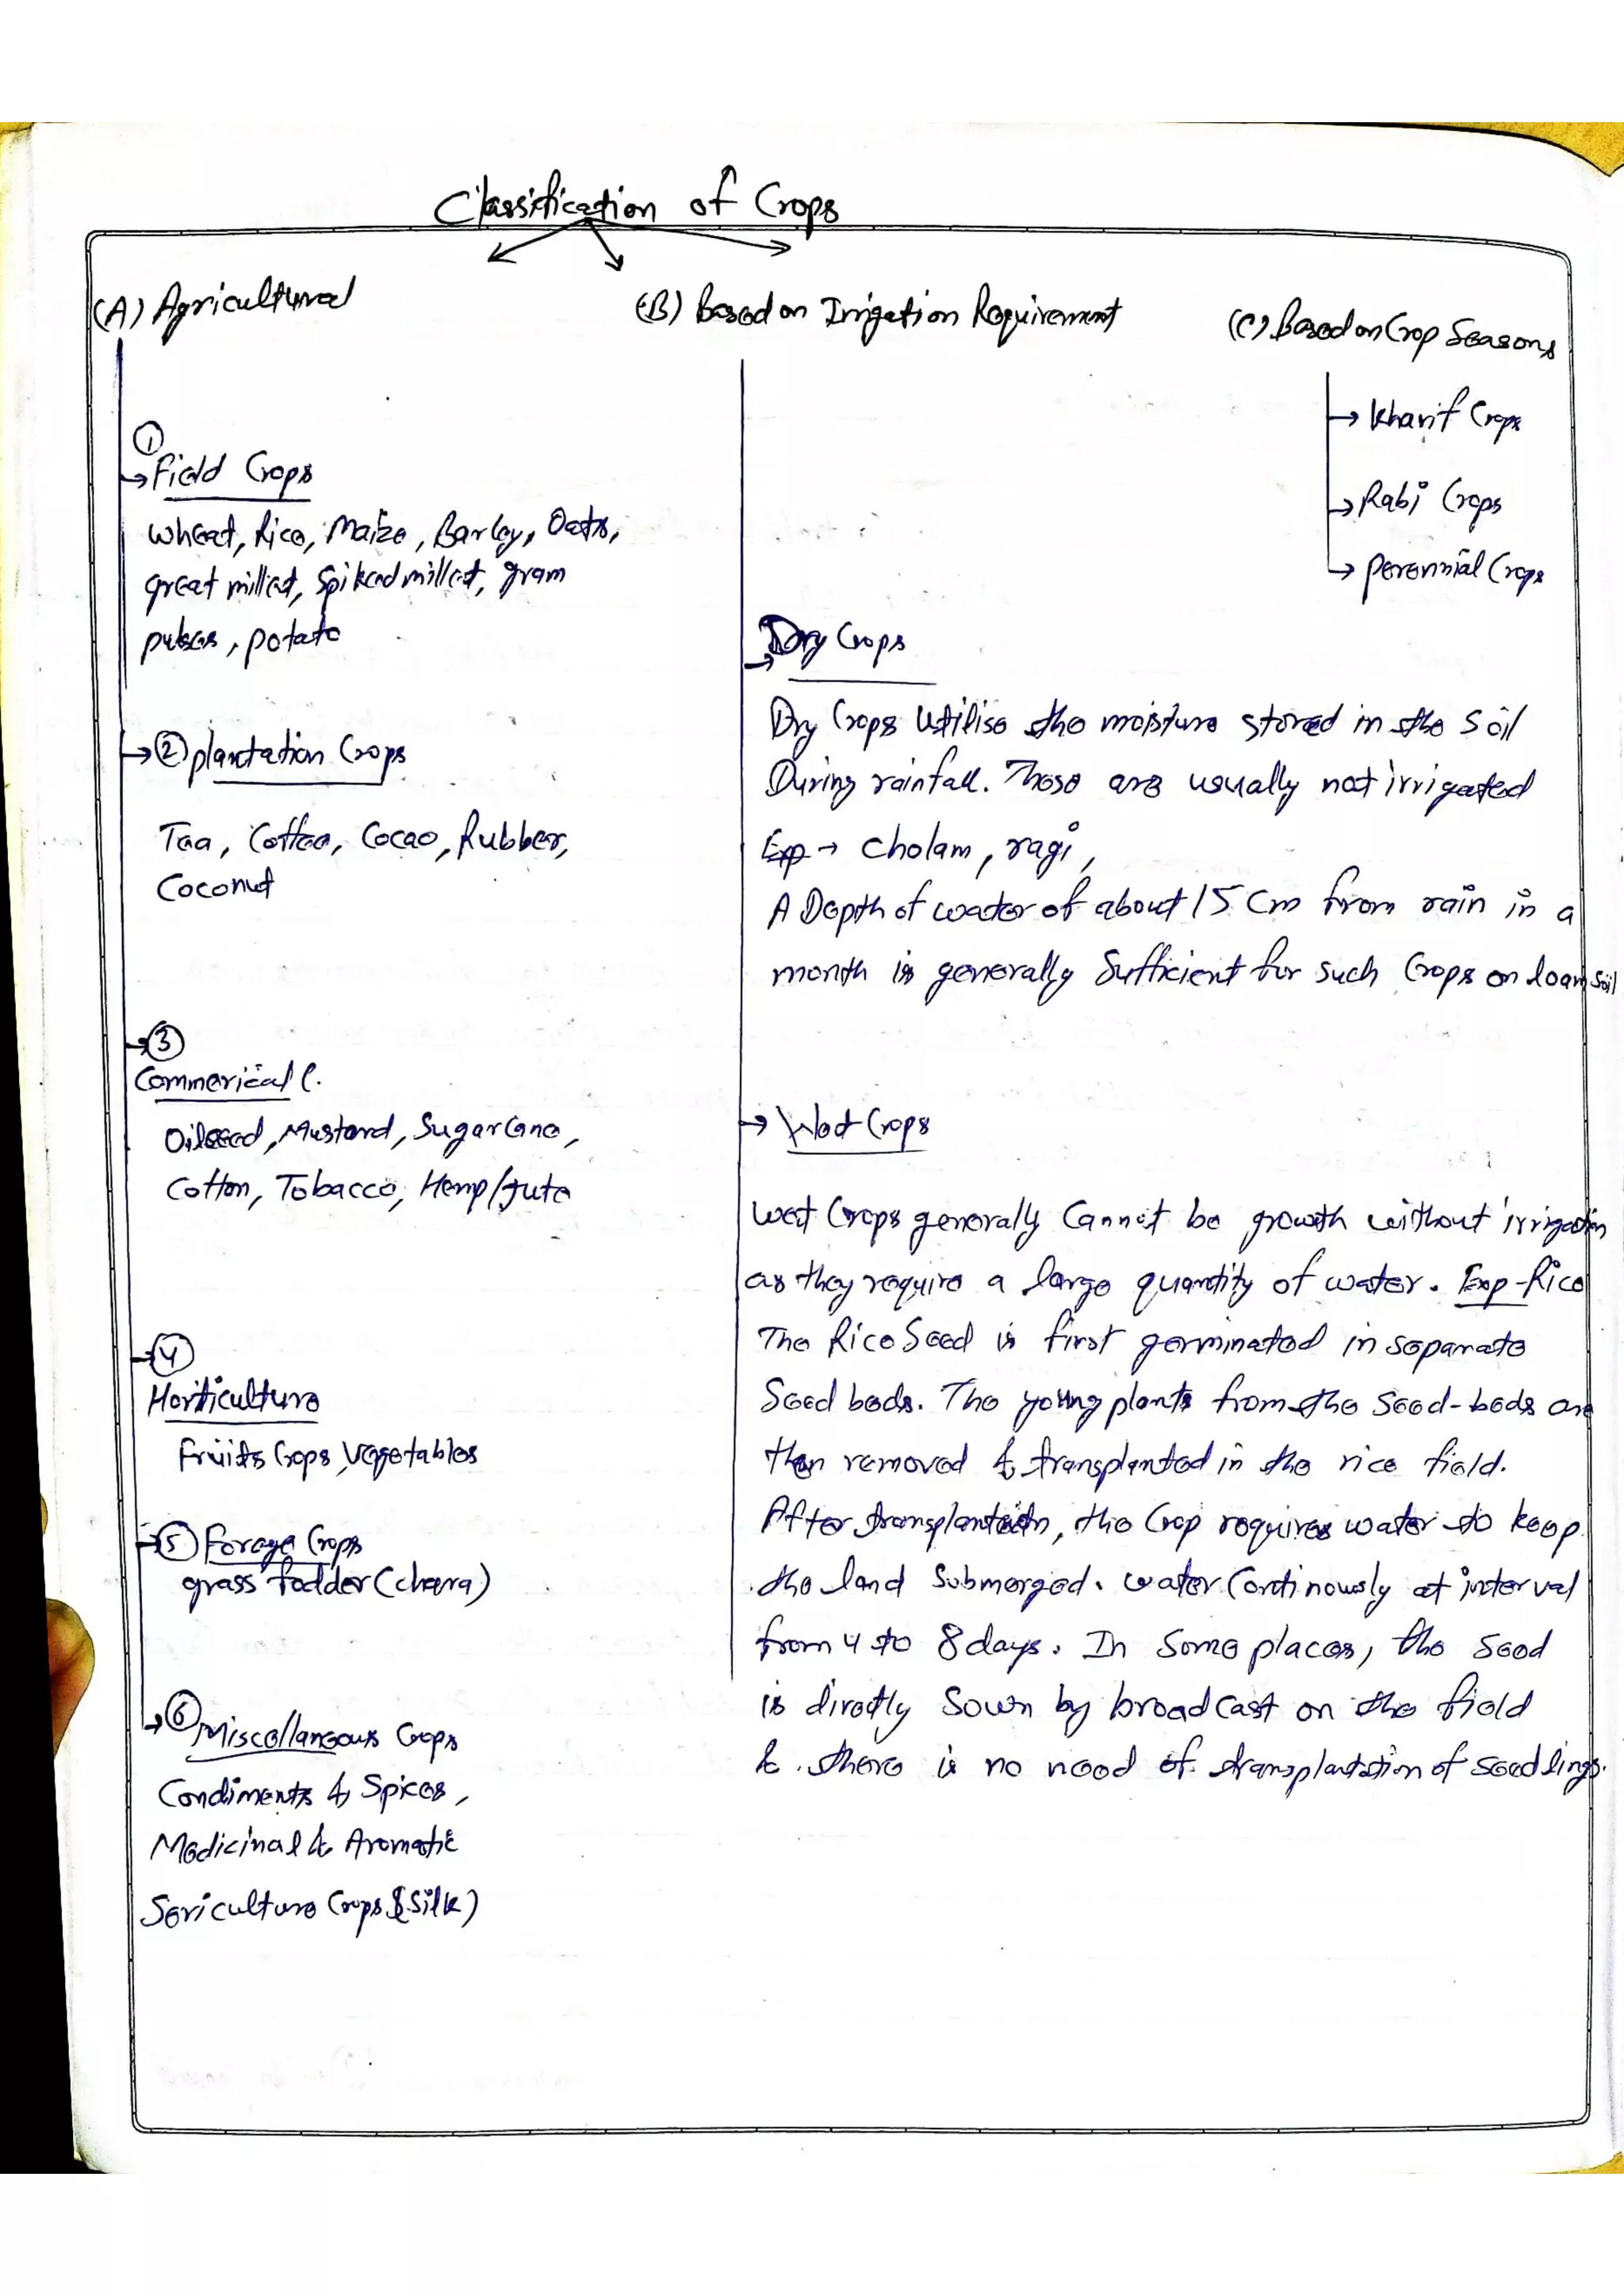 Classification of Crops
(A) Agricultural
①
→ Field Crops
Wheat, Rice, Maize, Barley, Oats,
great millet, Spiked millet, gram
pulses, potato
→ ② plantation Crops
Tea, Coffee, Cocao, Rubber,
Coconut
→ ③
Commerical C.
Oilseed, Mustard, Sugarcane,
Cotton, Tobacco, Hemp/Jute
→ ④
Horticulture
Fruits Crops, Vegetables
→ ⑤ Forage Crops
grass fodder (chara)
→ ⑥ Miscellaneous Crops
Condiments & Spices,
Medicinal & Aromatic
Sericulture Crops (Silk)
(B) Based on Irrigation Requirement
→ Dry Crops
Dry Crops Utilise the moisture stored in the Soil
During rainfall. These are usually not irrigated
Exp → Cholam, ragi,
A Depth of water of about 15 Cm from rain in a
month is generally Sufficient for such Crops on loam soil
→ Wet Crops
Wet Crops generally Cannot be growth without irrigation
as they require a large quantity of water. Exp - Rice
The Rice Seed is first germinated in separate
Seed beds. The young plants from the Seed-beds are
then removed & transplanted in the rice field.
After transplantation, the Crop requires water to keep
the land Submerged. water Continously at interval
from 4 to 8 days. In Some places, the seed
is directly Sown by broad cast on the field
& there is no need of transplantation of seedlings.
(C) Based on Crop Seasons
→ Kharif Crops
→ Rabi Crops
→ Perennial Crops